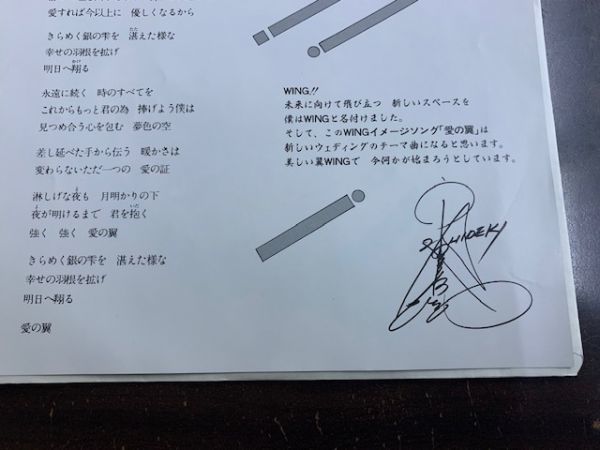 愛すれば今以上に 優しくなるから
きらめく銀の雫を 湛えた様な
幸せの羽根を拡げ
明日へ翔る
永遠に続く 時のすべてを
これからもっと君の為 捧げよう僕は
見つめ合う心を包む 夢色の空
差し延べた手から伝う 暖かさは
変わらないただ一つの 愛の証
淋しげな夜も 月明かりの下
夜が明けるまで 君を抱く
強く 強く 愛の翼
きらめく銀の雫を 湛えた様な
幸せの羽根を拡げ
明日へ翔る
愛の翼
WING!!
未来に向けて飛び立つ 新しいスペースを
僕はWINGと名付けました。
そして、このWINGイメージソング「愛の翼」は
新しいウェディングのテーマ曲になると思います。
美しい翼WINGで 今何かが始まろうとしています。
HIDEKI